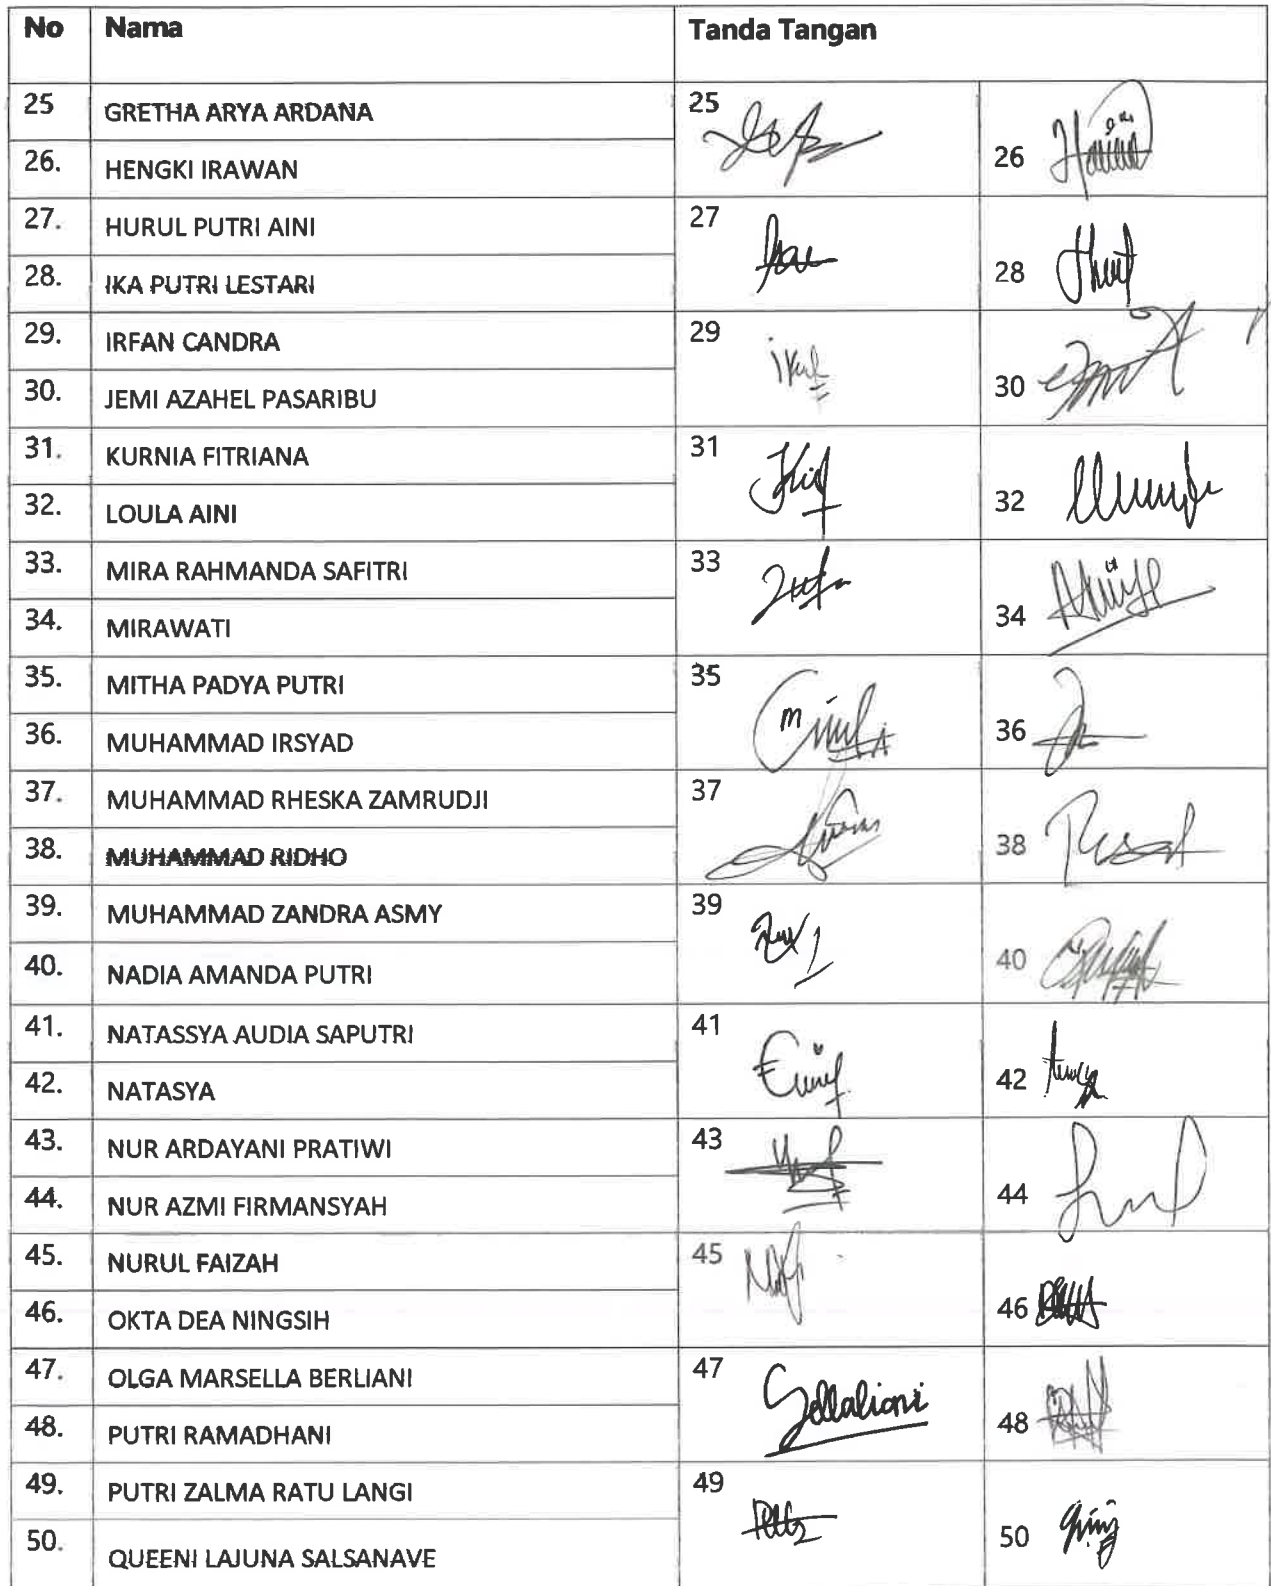 No Nama Tanda Tangan
25 GRETHA ARYA ARDANA 25
26. HENGKI IRAWAN 26
27. HURUL PUTRI AINI 27
28. IKA PUTRI LESTARI 28
29. IRFAN CANDRA 29
30. JEMI AZAHEL PASARIBU 30
31. KURNIA FITRIANA 31
32. LOULA AINI 32
33. MIRA RAHMANDA SAFITRI 33
34. MIRAWATI 34
35. MITHA PADYA PUTRI 35
36. MUHAMMAD IRSYAD 36
37. MUHAMMAD RHESKA ZAMRUDJI 37
38. MUHAMMAD RIDHO 38
39. MUHAMMAD ZANDRA ASMY 39
40. NADIA AMANDA PUTRI 40
41. NATASSYA AUDIA SAPUTRI 41
42. NATASYA 42
43. NUR ARDAYANI PRATIWI 43
44. NUR AZMI FIRMANSYAH 44
45. NURUL FAIZAH 45
46. OKTA DEA NINGSIH 46
47. OLGA MARSELLA BERLIANI 47
48. PUTRI RAMADHANI 48
49. PUTRI ZALMA RATU LANGI 49
50. QUEENI LAJUNA SALSANAVE 50